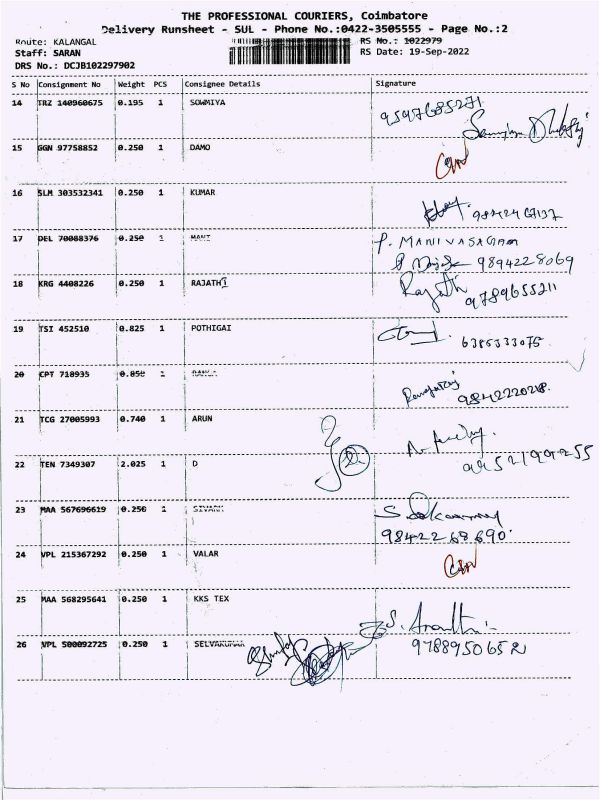 THE PROFESSIONAL COURIERS, Coimbatore
Delivery Runsheet - SUL - Phone No.:0422-3505555 - Page No.:2
Route: KALANGAL
RS No.: 1022979
Staff: SARAN
RS Date: 19-Sep-2022
DRS No.: DCJB102297902
S No Consignment No Weight PCS Consignee Details Signature
14 TRZ 140960675 0.195 1 SOWMIYA 9597685271
15 GGN 97758852 0.250 1 DAMO
16 SLM 303532341 0.250 1 KUMAR
17 DEL 70088376 0.250 1 MANI P. MANIVASAGAM
9894228069
18 KRG 4408226 0.250 1 RAJATHI Rajathi
9789655211
19 TSI 452510 0.825 1 POTHIGAI
6385333075
20 CPT 718935 0.850 1
9842220218
21 TCG 27005993 0.740 1 ARUN
9952199255
22 TEN 7349307 2.025 1 D
23 MAA 567696619 0.250 1
9842268690
24 VPL 215367292 0.250 1 VALAR
25 MAA 568295641 0.250 1 KKS TEX
26 VPL 500092725 0.250 1 SELVAKUMAR
9788950652